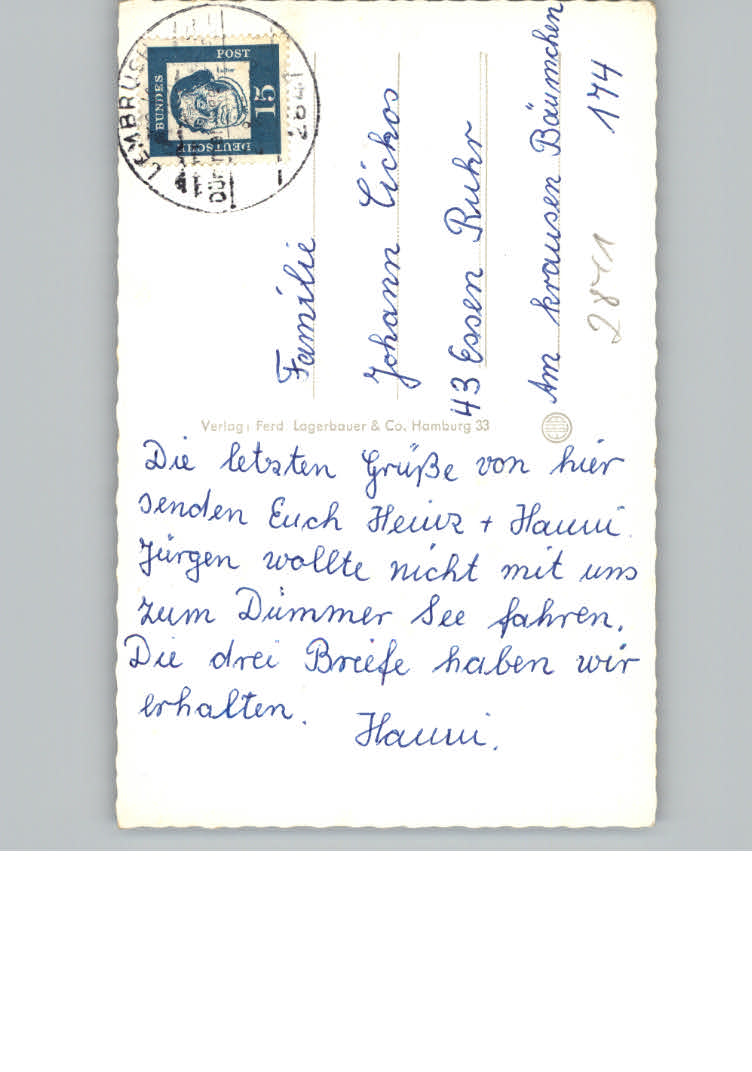 Die letzten Grüße von hier
senden Euch Heinz + Hanni.
Jürgen wollte nicht mit uns
zum Dümmer See fahren.
Die drei Briefe haben wir
erhalten. Hanni.
Verlag: Ferd Lagerbauer & Co. Hamburg 33
Familie
Johann Cichos
43 Essen Ruhr
Am krausen Bäumchen
174
2841
DEUTSCHE
BUNDES
POST
15
LEMBRUCH
2841